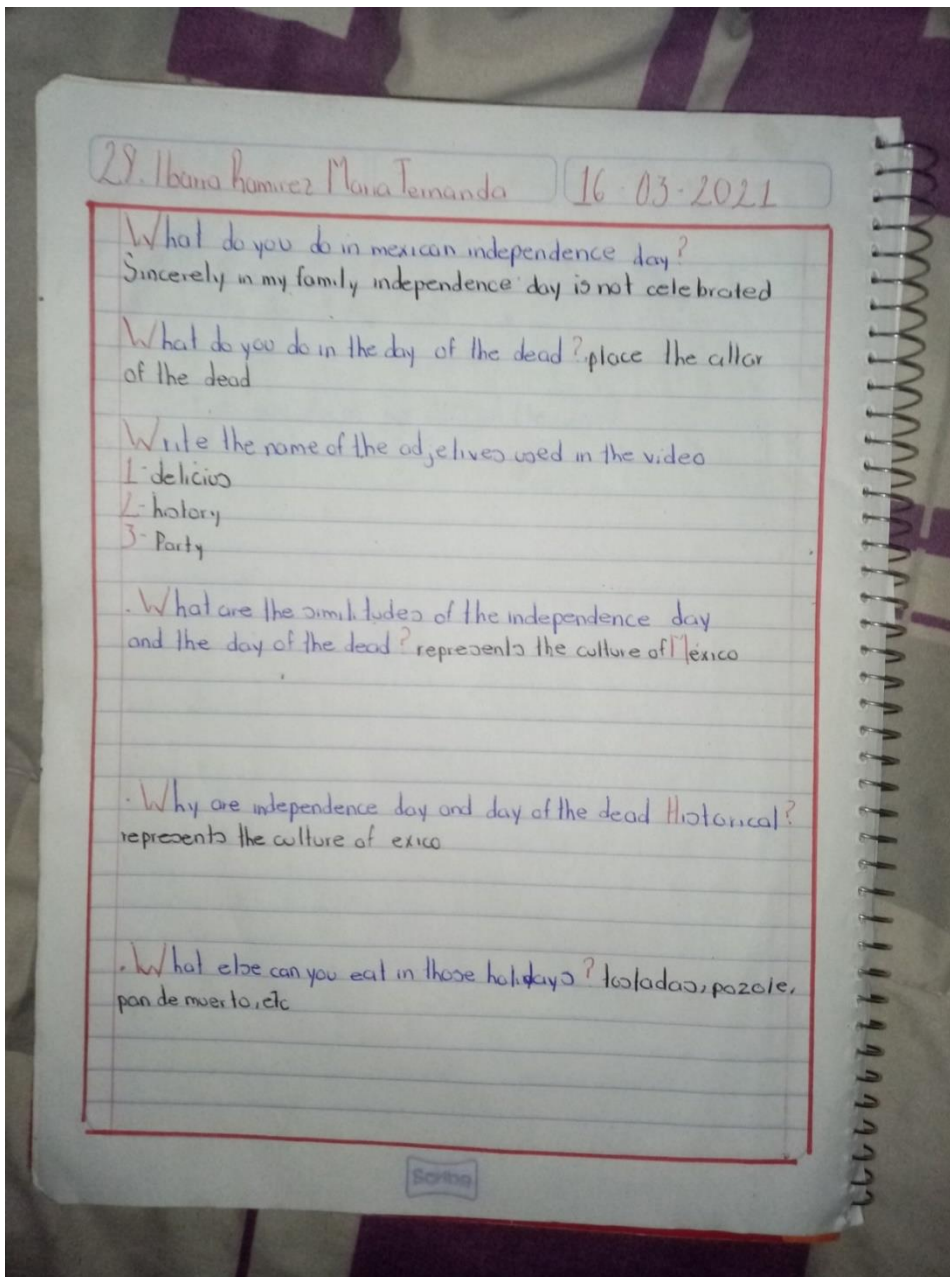 29. Ibarra Ramirez Maria Fernanda 16-03-2021
What do you do in mexican independence day?
Sincerely in my family independence day is not celebrated
What do you do in the day of the dead? place the altar
of the dead
Write the name of the adjetives used in the video
1- delicios
2- history
3- Party
. What are the similitudes of the independence day
and the day of the dead? represents the culture of México
. Why are independence day and day of the dead Historical?
represents the culture of exico
. What else can you eat in those holidays? tostadas, pozole,
pan de muerto, etc
Scribe